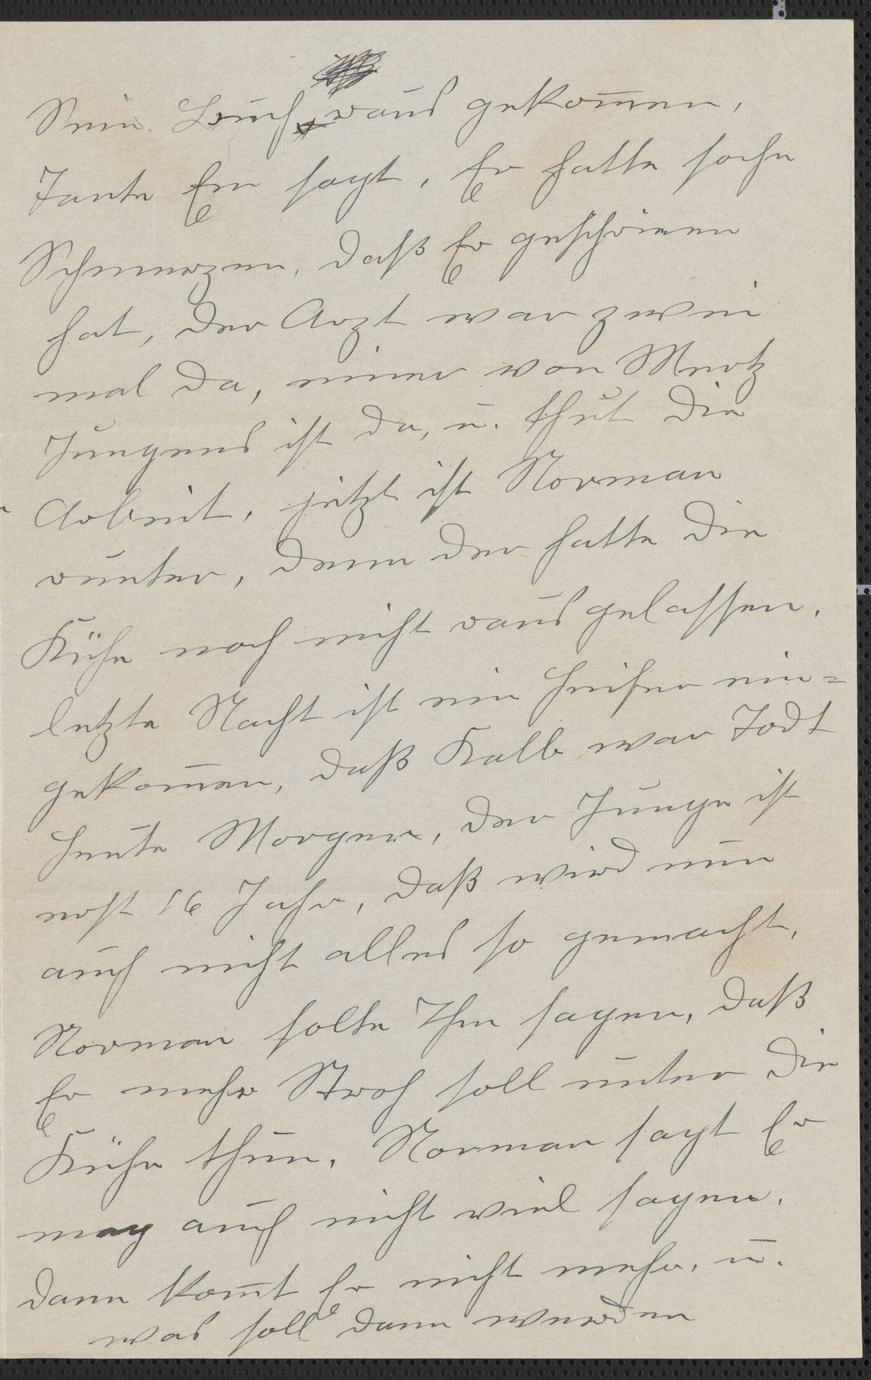 Sein Bruch, raus gekom̅en,
Tante Em sagt, Er hatte solche
Schmerzen, daß Er geschrieen
hat, der Arzt war zwei
mal da, einer von Mertz
Jungens ist da, u. thut die
Arbeit, jetzt ist Norman
runter, denn der hatte die
Kühe noch nicht raus gelassen,
letzte Nacht ist ein Heifer ein=
gekom̅en, daß Kalb war Todt
heute Morgen, der Junge ist
erst 16 Jahr, daß wird nun
auch nicht alles so gemacht,
Norman sollte Ihm sagen, daß
Er mehr Stroh soll unter die
Kühe thun, Norman sagt Er
mag auch nicht viel sagen,
dann kom̅t Er nicht mehr, u.
was soll dann werden